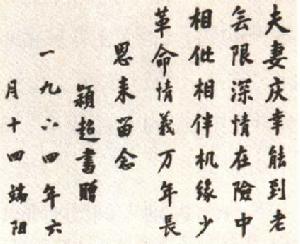 夫妻庆幸能到老
無限深情在險中
相依相伴机缘少
革命情義万年長
恩来留念
穎超書贈
一九六四年六
月十四端阳